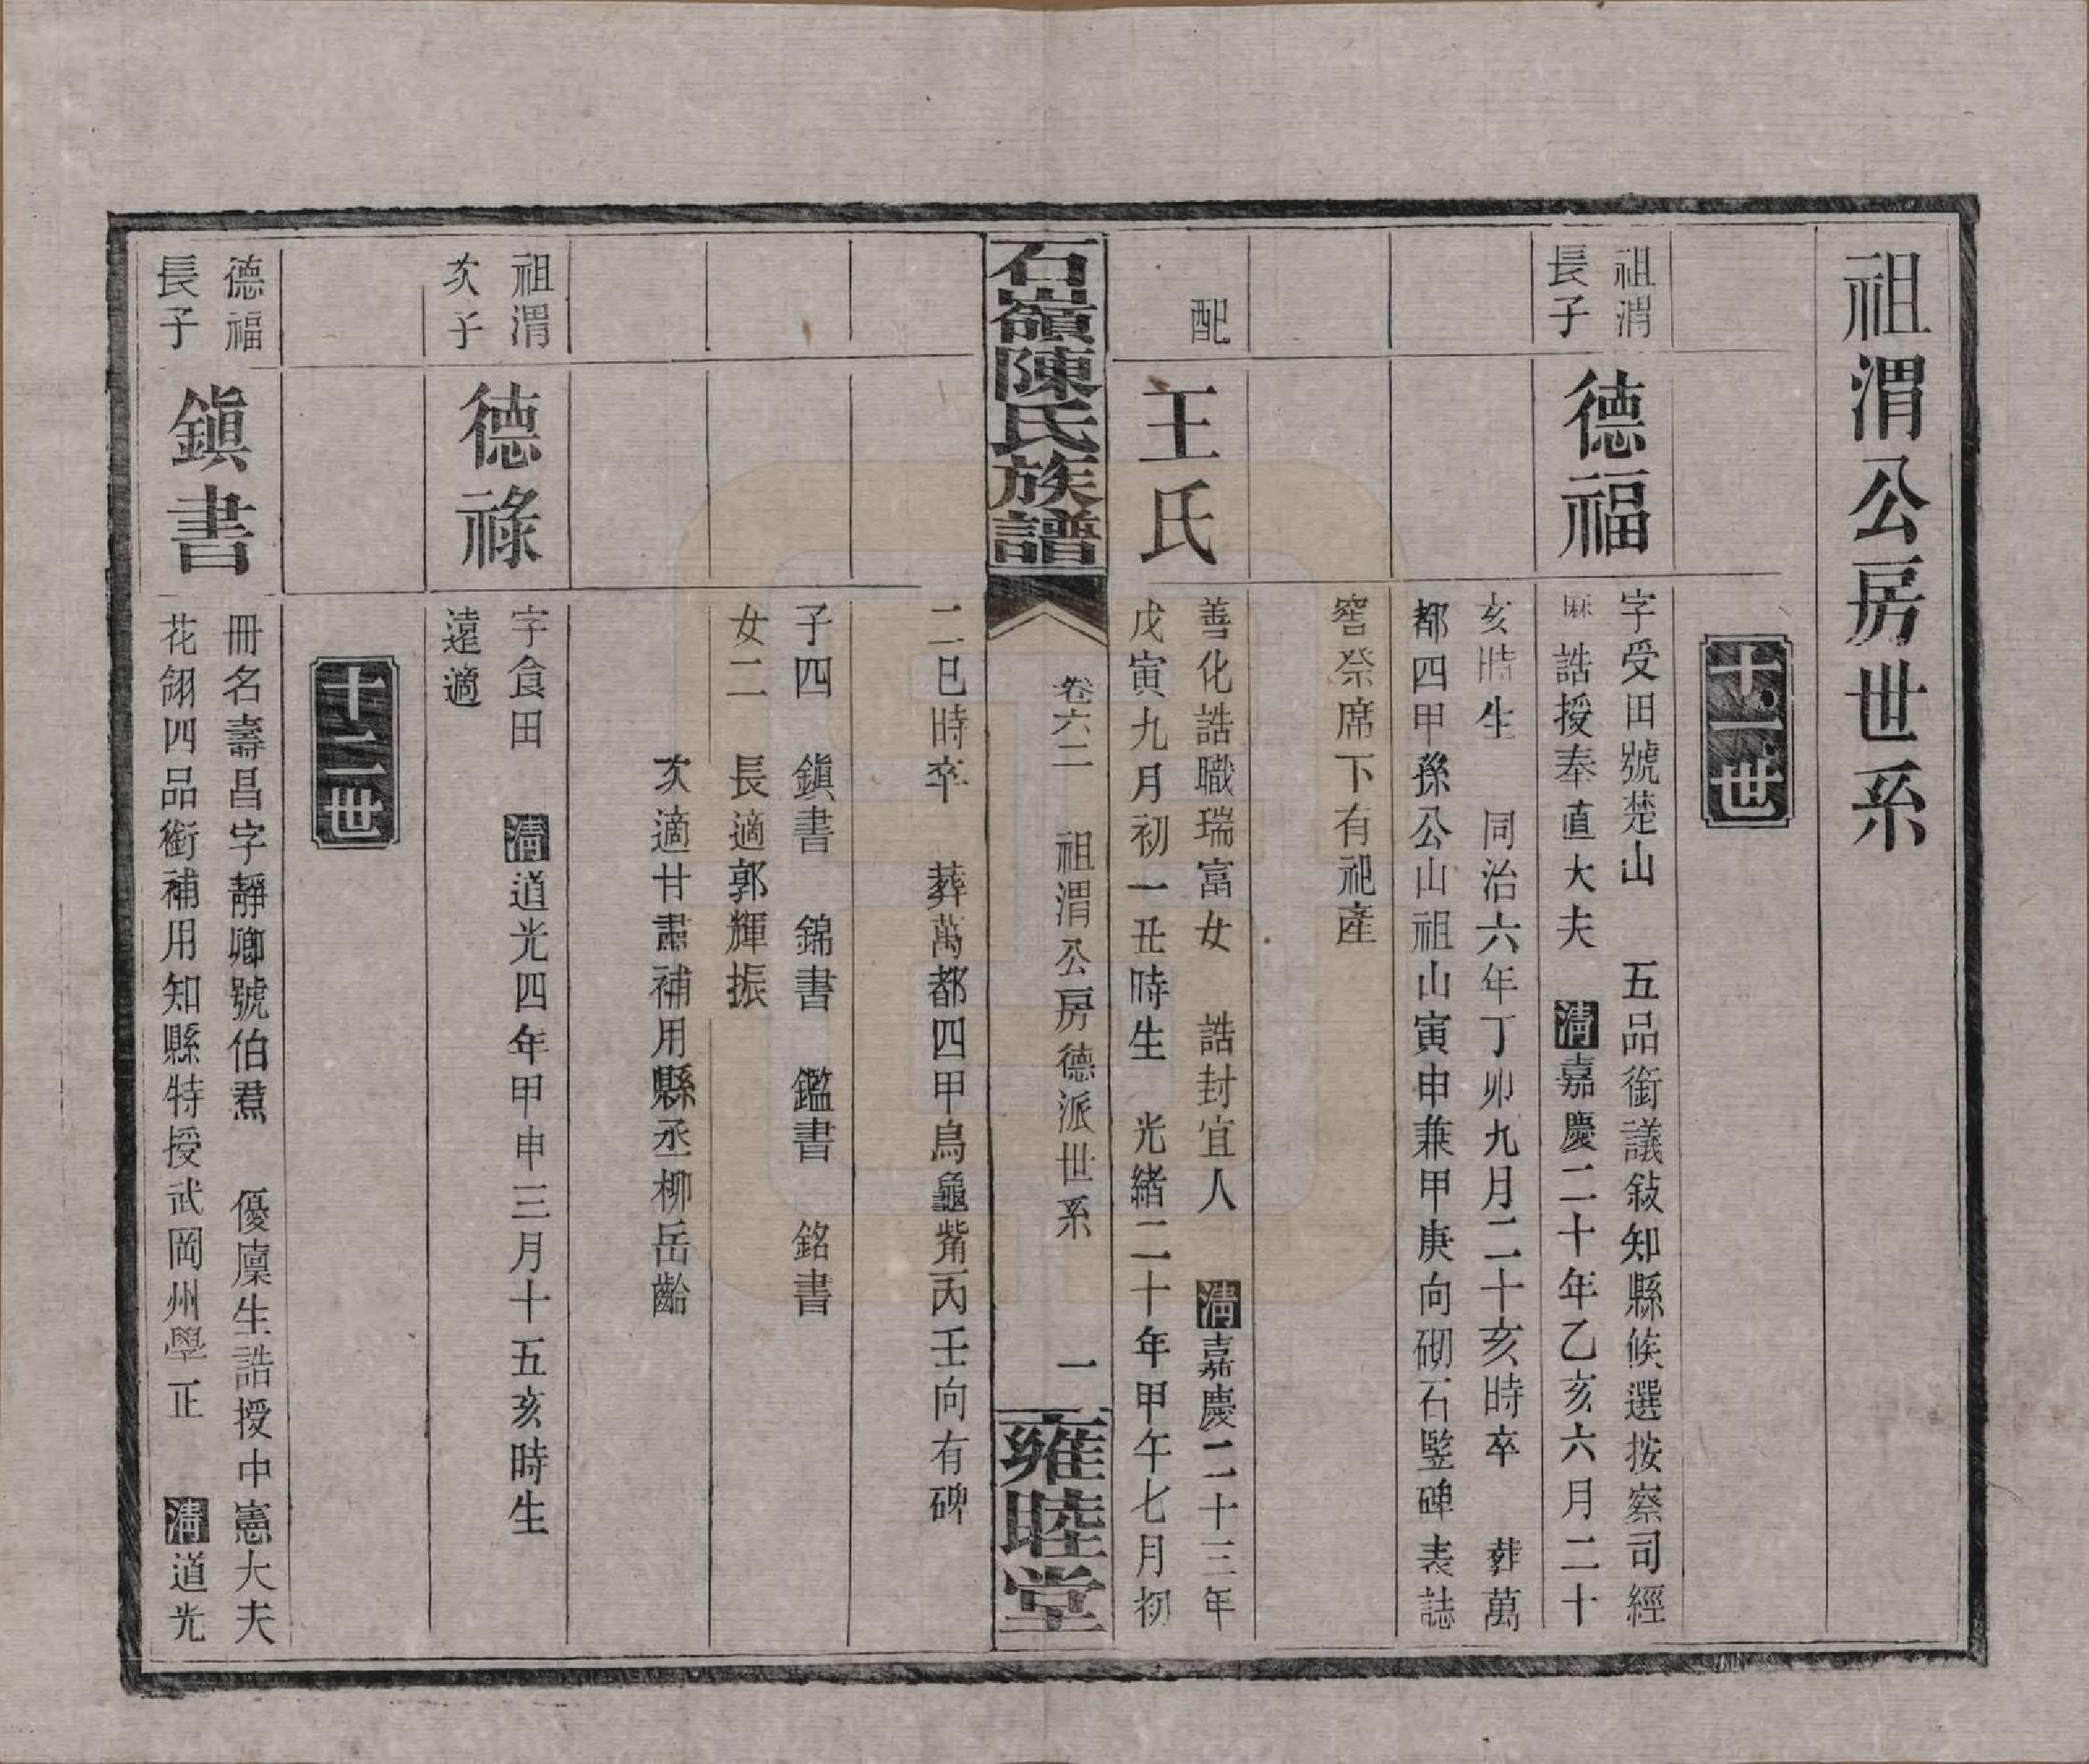 祖渭公房世系
十一世
祖渭
長子
德福
字受田號楚山 五品銜議敍知縣候選按察司經
厤 誥授奉直大夫 清嘉慶二十年乙亥六月二十
亥時生 同治六年丁卯九月二十亥時卒 葬萬
都四甲孫公山祖山寅申兼甲庚向砌石竪碑表誌
窖祭席下有祀產
配
王氏
善化誥職瑞富女 誥封宜人 清嘉慶二十三年
戊寅九月初一丑時生 光緒二十年甲午七月初
石嶺陳氏族譜
卷六二 祖渭公房德派世系 一
雍睦堂
二巳時卒 葬萬都四甲烏龜嘴丙壬向有碑
子四 鎭書 錦書 鑑書 銘書
女二 長適郭輝振
次適甘肅補用縣丞柳岳齡
祖渭
次子
德祿
字食田 清道光四年甲申三月十五亥時生
遠適
十二世
德福
長子
鎭書
冊名壽昌字靜卿號伯熹 優廩生誥授中憲大夫
花翎四品銜補用知縣特授武岡州學正 清道光